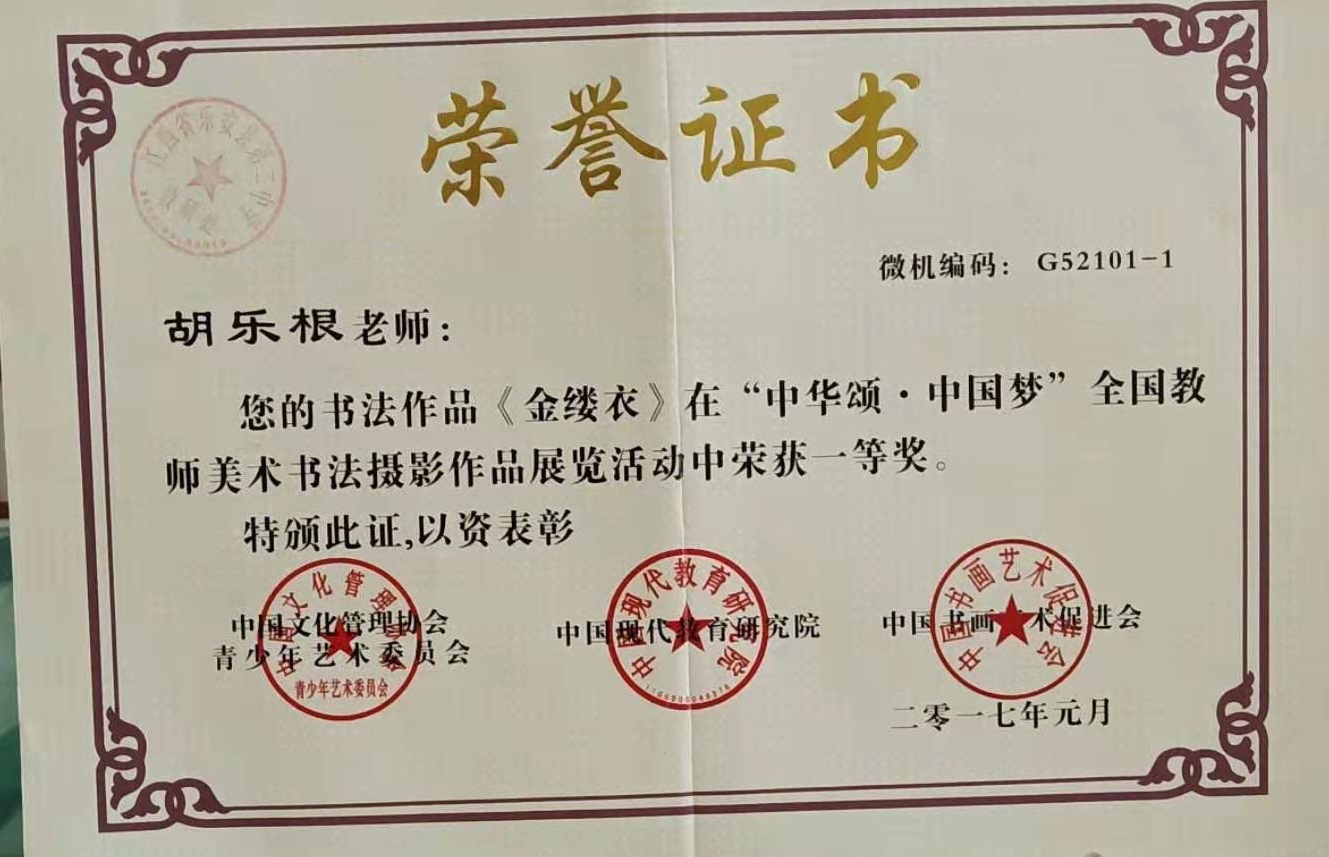 荣誉证书
江西省乐安县第二中学
微机编码: G52101-1
胡乐根老师:
您的书法作品《金缕衣》在“中华颂·中国梦”全国教
师美术书法摄影作品展览活动中荣获一等奖。
特颁此证,以资表彰
中国文化管理协会
青少年艺术委员会
中国现代教育研究院
中国书画艺术促进会
中国文化管理协会
青少年艺术委员会
中国现代教育研究院
中国书画艺术促进会
二零一七年元月